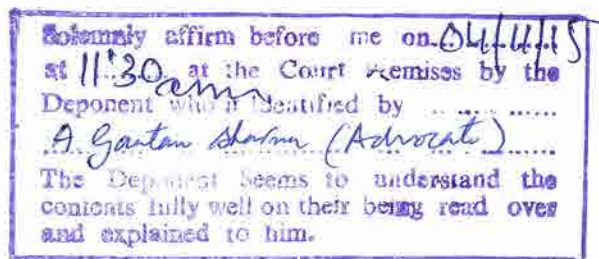 Solemnly affirm before me on 04/11/15
at 11:30 am at the Court Premises by the
Deponent who is identified by .. ..... ......
A Gautam Sharma (Advocate)
The Deponent Seems to understand the
contents fully well on their being read over
and explained to him.